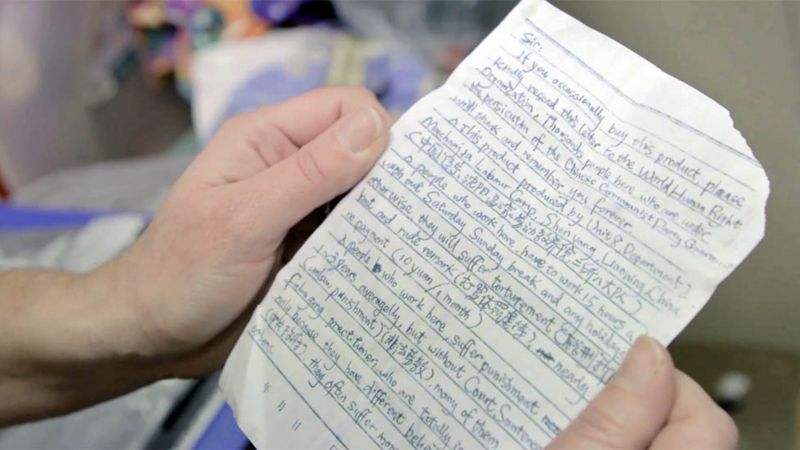 Sir:
If you occassionally buy this product, please
kindly resend this letter to the World Human Right
Organization. Thousands people here who are under
the persicution of the Chinese Communist Party Govern
will thank and remember you forever
△ This product produced by Unit 8 Department 2
Masanjia Labour Camp. Shenyang, Liaoning, China
(中国, 辽宁, 沈阳
△ People who work here, have to work 15 hours a
with out Saturday, Sunday break and any holidays
otherwise, they will suffer torturement (
beat and rude remark nearly
no payment (10 yuan / 1 month)
△ People who work here, suffer punishment
1~2 years averagelly, but without Court Sentence
(unlaw punishment) (非法劳教) many of them
Falun gong practitioner, who are totally in
only because they have different believe
they often suffer more
other.
" " "